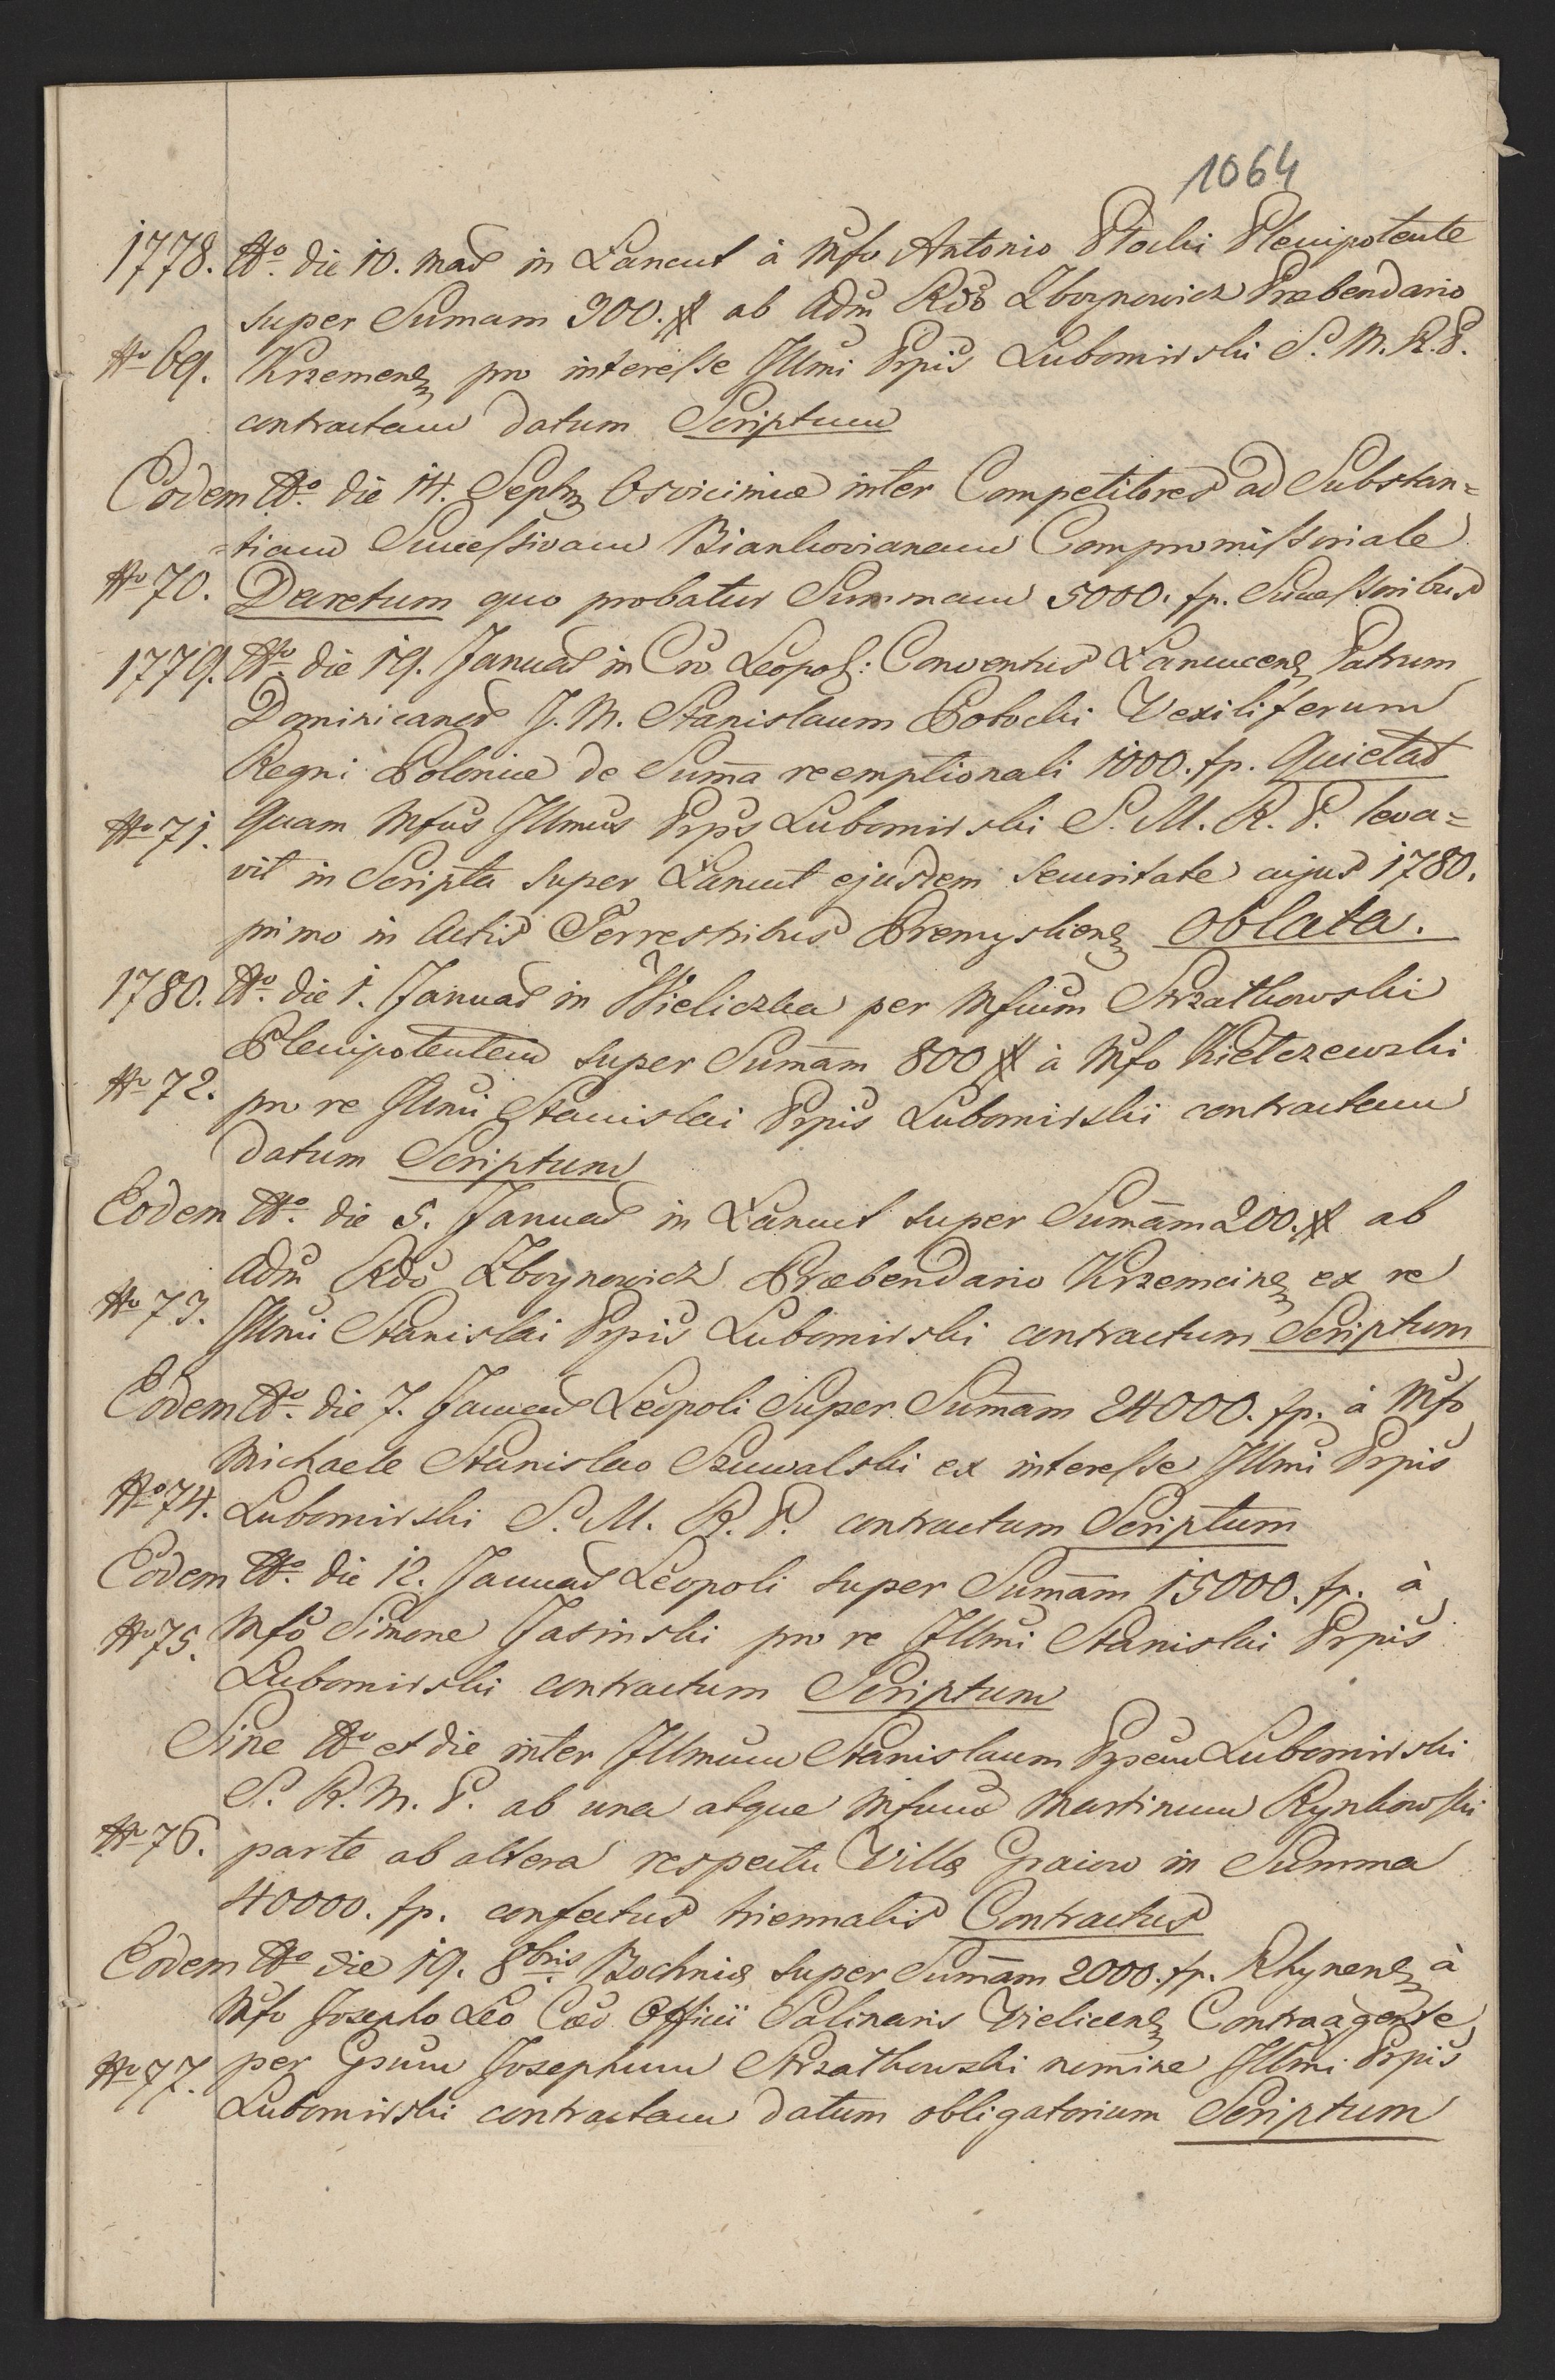 1064
1778. Ao. die 10. Maÿ in Łancut à Mfo Antonio Płocki Plenipotente
super Sumam 300. # ab Adm Rdo Zboynowicz Præbendario
No 69. Krzemen. pro interesse Illmi Prpis Lubomirski S. M. R. P.
contractam datum Scriptum
Eodem Ao. die 14. Septm Osvicimiæ inter Competitores ad Substan=
=tiam Successivam Biankovianam Compromissoriale
No 70. Decretum quo probatur Summam 5000. fp. Successoribus
1779. Ao. die 19. Januar in Cŭ Leopol: Conventus Lancucens Patrum
Dominicanor J. M. Stanislaum Potocki Vexiliferum
Regni Poloniæ de Suma reemptionali 1000. fp. Quietat
No 71. Quam Mfus Illmus Prps Lubomirski S. M. R. P. leva=
vit in Scripta super Łancut ejusdem securitate cujus 1780.
primo in Actis Terrestribus Premysliens Oblata.
1780. Ao. die 1. Januar in Wieliczka per Mfium Strzałkowski
Plenipotentem super Sumam 800 # à Mfo Kiełczewski
No 72. pro re Illmi Stanislai Prpis Lubomirski contractam
datum Scriptum
Eodem Ao. die 5. Januar in Łancut super Sumam 200. # ab
Adm Rdo Zboynowicz Præbendario Krzemeins ex re
No 73. Illmi Stanislai Prpis Lubomirski contractum Scriptum
Eodem Ao. die 7. Januar Leopoli Super Sumam 24000. fp. à Mfo
Michaele Stanislao Szuwalski ex interesse Illmi Prpis
No 74. Lubomirski S. M. R. P. contractum Scriptum
Eodem Ao. die 12. Januar Leopoli super Sumam 15000. fp. à
No 75. Mfo Simone Jasinski pro re Illmi Stanislai Prpis
Lubomirski contractum Scriptum
Sine Ao et die inter Illmum Stanislaum Prpem Lubomirski
S. R. M. P. ab una atque Mfum Martinum Rynkowski
No 76. parte ab altera respectu Villæ Graiow in Summa
40000. fp. confectus triennalis Contractus
Eodem Ao die 19. 8bris Bochniæ super Sumam 2000. fp. Rhynens à
Mfo Josepho Leo Cæs Officii Salinaris Vielicens Contraagente
No 77. per Gsum Josephum Strzałkowski nomine Illmi Prpis
Lubomirski contractam datum obligatorium Scriptum